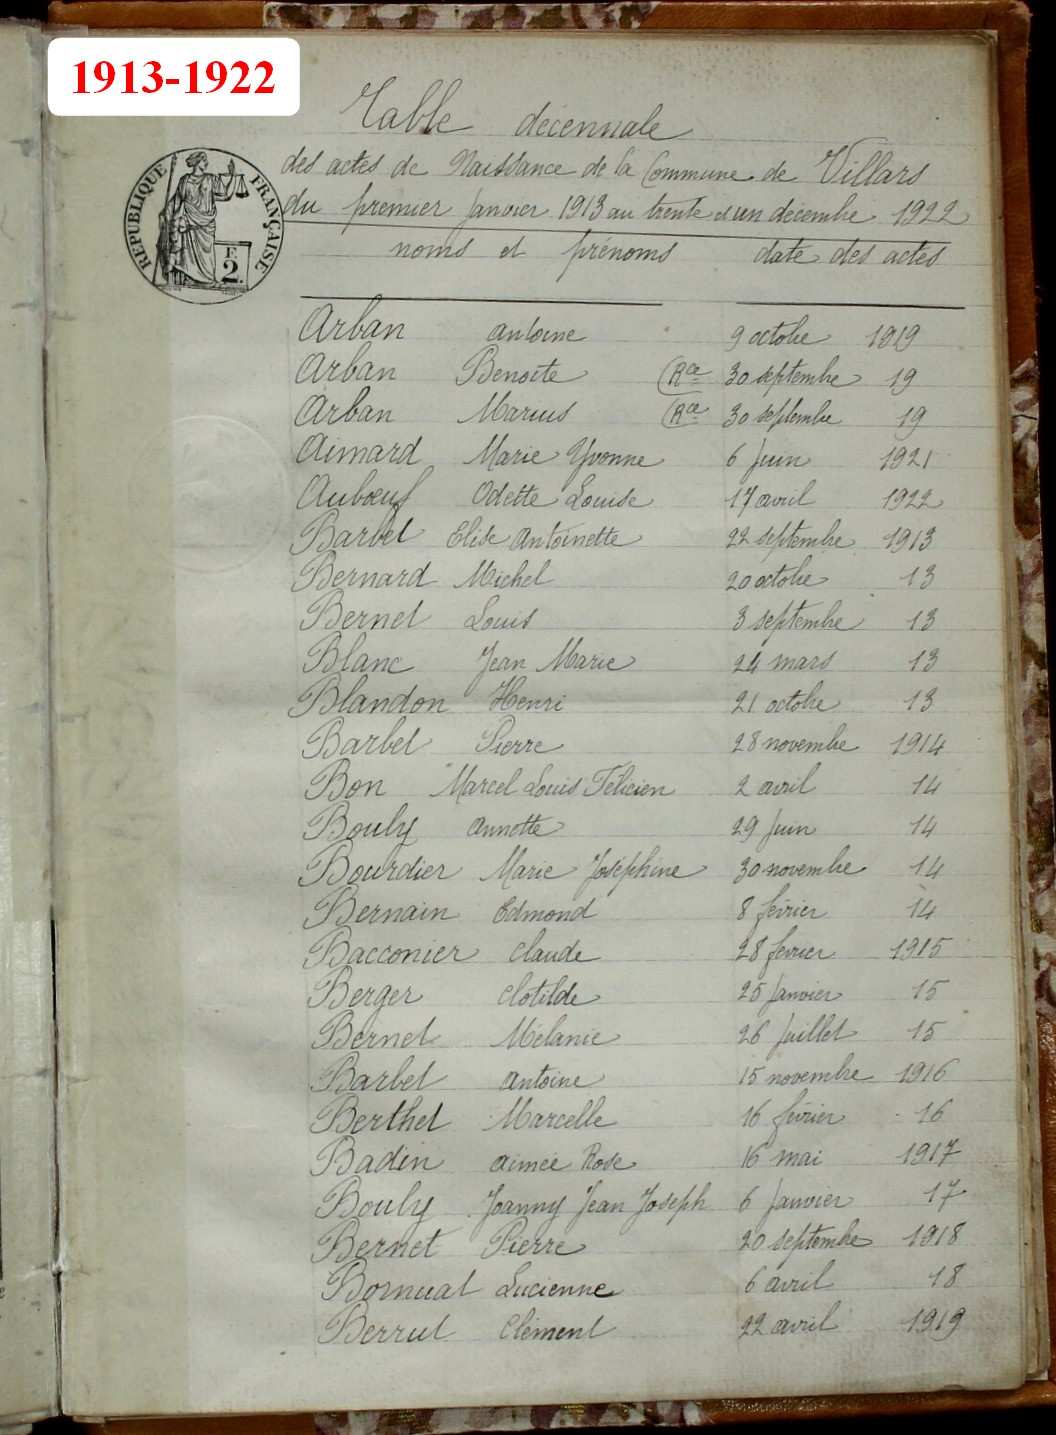 1913-1922
Table décennale
des actes de Naissance de la Commune de Villars
du premier Janvier 1913 au trente et un décembre 1922
RÉPUBLIQUE FRANÇAISE
2
noms et prénoms date des actes
Arban antoine 9 octobre 1919
Arban Benoite (Rce 30 septembre 19
Arban Marius (Rce 30 septembre 19
Aimard Marie Yvonne 6 Juin 1921
Auboeuf Odette Louise 17 avril 1922
Barbet Elise Antoinette 22 septembre 1913
Bernard Michel 20 octobre 13
Bernet Louis 3 septembre 13
Blanc Jean Marie 24 mars 13
Blandon Henri 21 octobre 13
Barbet Pierre 28 novembre 1914
Bon Marcel Louis Félicien 2 avril 14
Bouly annette 29 Juin 14
Bourdier Marie Joséphine 30 novembre 14
Bernain Edmond 8 février 14
Bacconier Claude 28 février 1915
Berger Clotilde 25 Janvier 15
Bernet Mélanie 26 Juillet 15
Barbet antoine 15 novembre 1916
Berthet Marcelle 16 février 16
Badin aimée Rose 16 mai 1917
Bouly Joanny Jean Joseph 6 Janvier 17
Bernet Pierre 20 septembre 1918
Bornuat Lucienne 6 avril 18
Berrut Clément 22 avril 1919